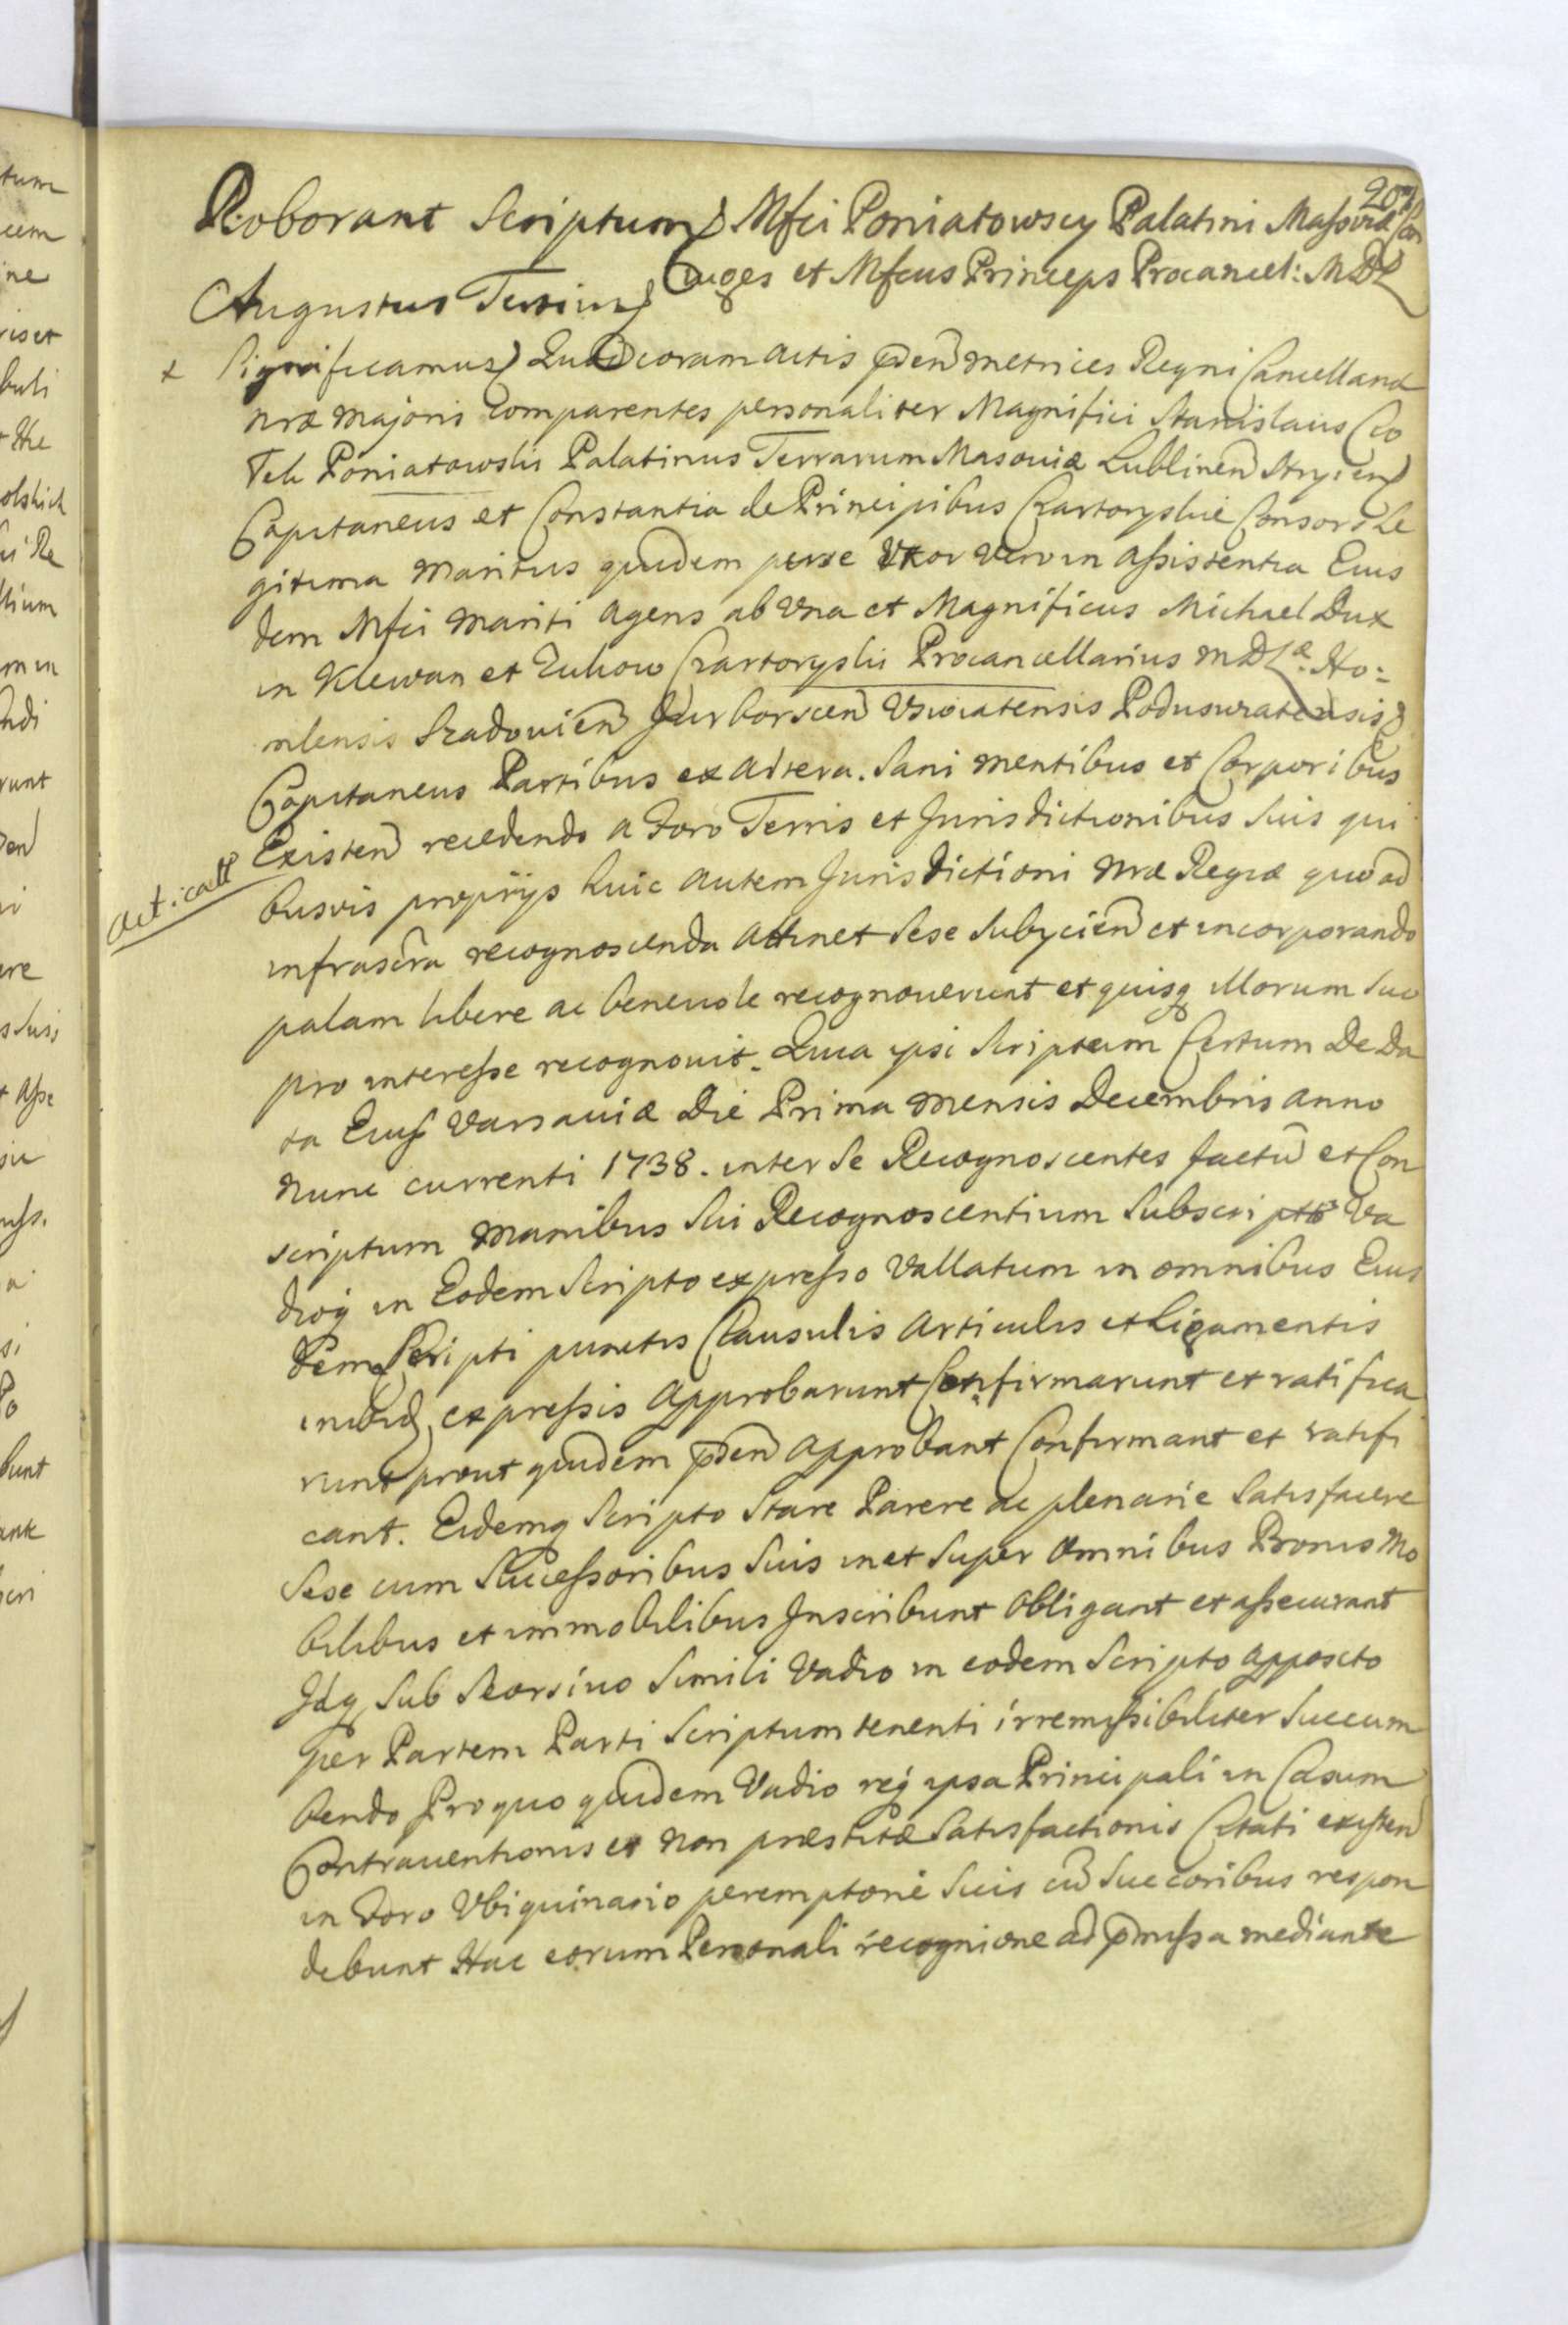 20
Roborant Scriptum Mfci Poniatowscy Palatini Massoviæ Con
iuges et Mfcus Princeps Procancel: MDL
Augustus Tertius
+ Significamus Quia coram actis pñ metrices Regni Cancellariæ
nræ majoris comparentes personaliter Magnifici Stanislaus Cio
Tek Poniatowski Palatinus Terrarum Masoviæ Lublinen Stryien
Capitaneus et Constantia de Principibus Czartoryskie Consors Le
gitima maritus quidem per se Uxor vero in assistentia Eius
dem Mfci mariti agens ab Una et Magnificus Michael Dux
in Klewan et Zukow Czartoryski Procancellarius MDL Ho:
mlensis Szadovien Jurborscen Uswiatensis Podusuratensis
Capitaneus Partibus ex altera. Sani mentibus et Corporibus
Existen recedendo a Foro Terris et Jurisdictionibus Suis qui
acticatt
busvis proprijs huic autem Jurisdictioni nræ Regiæ quoad
infrascra recognoscenda attinet Sese Subijcien et incorporando
palam libere ac benevole recognoverunt et quisq illorum Suo
pro interesse recognovit. Quia ipsi Scriptum Certum De Da
ta Eius Varsaviæ Die Prima mensis Decembris anno
nunc currenti 1738. inter Se Recognoscentes factũ et Con
scriptum manibus Sui Recognoscentium Subscripto Va
dioq in Eodem Scripto expresso Vallatum in omnibus Eius
dem Scripti punctis Clausulis articulis et Ligamentis
inibid expressis approbarunt Confirmarunt et ratifica
runt prout quidem pñ approbant Confirmant et ratifi
cant. Eidemq Scripto Stare Parere ac plenarie Satisfacere
Sese cum Successoribus Suis in et Super omnibus Bonis mo
bilibus et immobilibus Inscribunt obligant et assecurant
Idq Sub Seorsivo Simili Vadio in eodem Scripto apposito
per Partem Parti Scriptum tenenti irremissibiliter Succum
bendo Pro quo quidem Vadio req ipsa Principali in Casum
Contraventionis et non præstitæ Satisfactionis Citati existen
in Foro Ubiquinario peremptorie Suis cũ Succoribus respon
debunt Hac eorum Personali recognione ad pmissa mediante